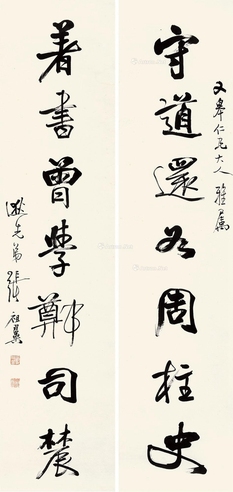 又皋仁兄大人雅屬
守道還如周柱史
著書曾學鄭司農
逖先弟張祖翼